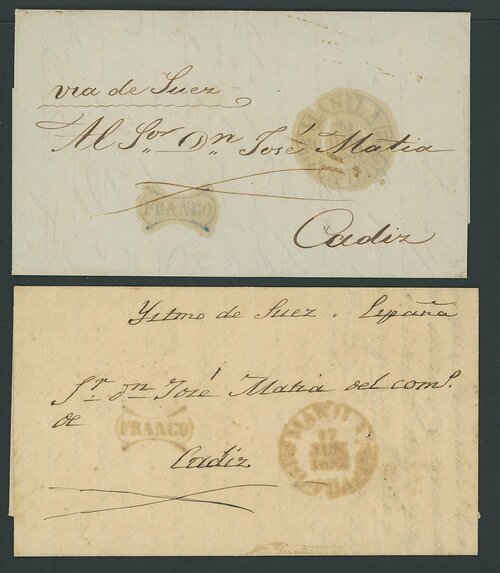 via de Suez
Al Sor. Dn José Matia
FRANCO
Cadiz
Ystmo de Suez. España
Sr. Dn José Matia del coms.
de
FRANCO
MANILA
17
JUN
Cadiz